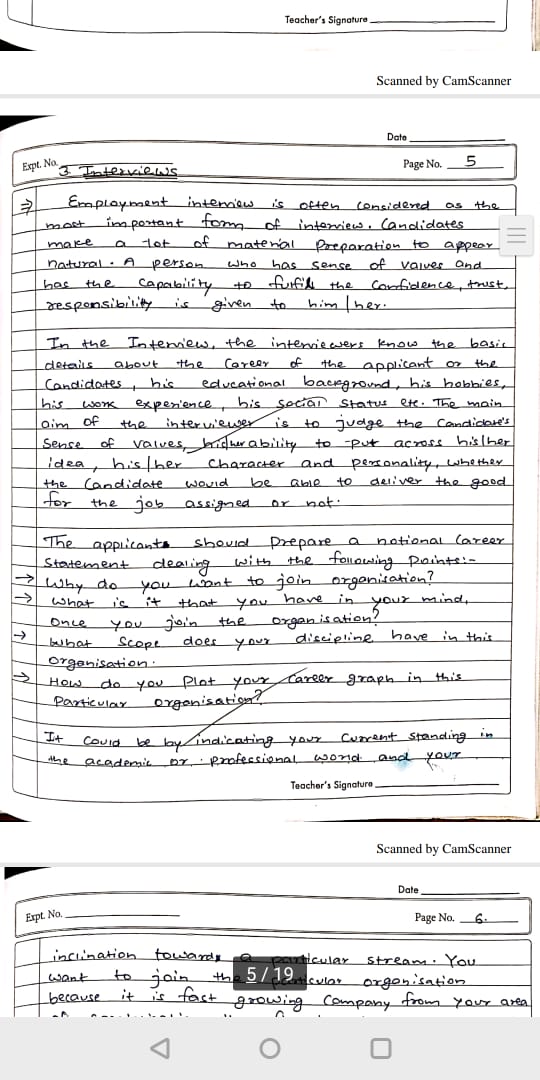 Teacher's Signature
Scanned by CamScanner
Date
Expt. No. 3. Interviews
Page No. 5
⇒ Employment interview is often considered as the
most important form of interview. Candidates
make a lot of material Preparation to appear
natural. A person who has sense of values and
has the capability to fulfill the confidence, trust,
responsibility is given to him/her.
In the Interview, the interviewers know the basic
details about the Career of the applicant or the
Candidates, his educational background, his hobbies,
his work experience, his social status etc. The main
aim of the interviewer is to judge the Candidate's
Sense of values, his/her ability to put across his/her
idea, his/her Character and personality, whether
the Candidate would be able to deliver the good
for the job assigned or not.
The applicants should Prepare a notional Career
Statement dealing with the following Points:-
→ Why do you want to join organisation?
→ What is it that you have in your mind,
Once you join the organisation?
→ What Scope does your discipline have in this
Organisation.
→ How do you Plot your Career graph in this
Particular organisation?
It Could be by indicating your Current Standing in
the academic or professional world and your
Teacher's Signature
Scanned by CamScanner
Date
Expt. No.
Page No. 6.
inclination towards a particular stream. You
want to join the particular organisation
5 / 19
because it is fast growing Company from your area